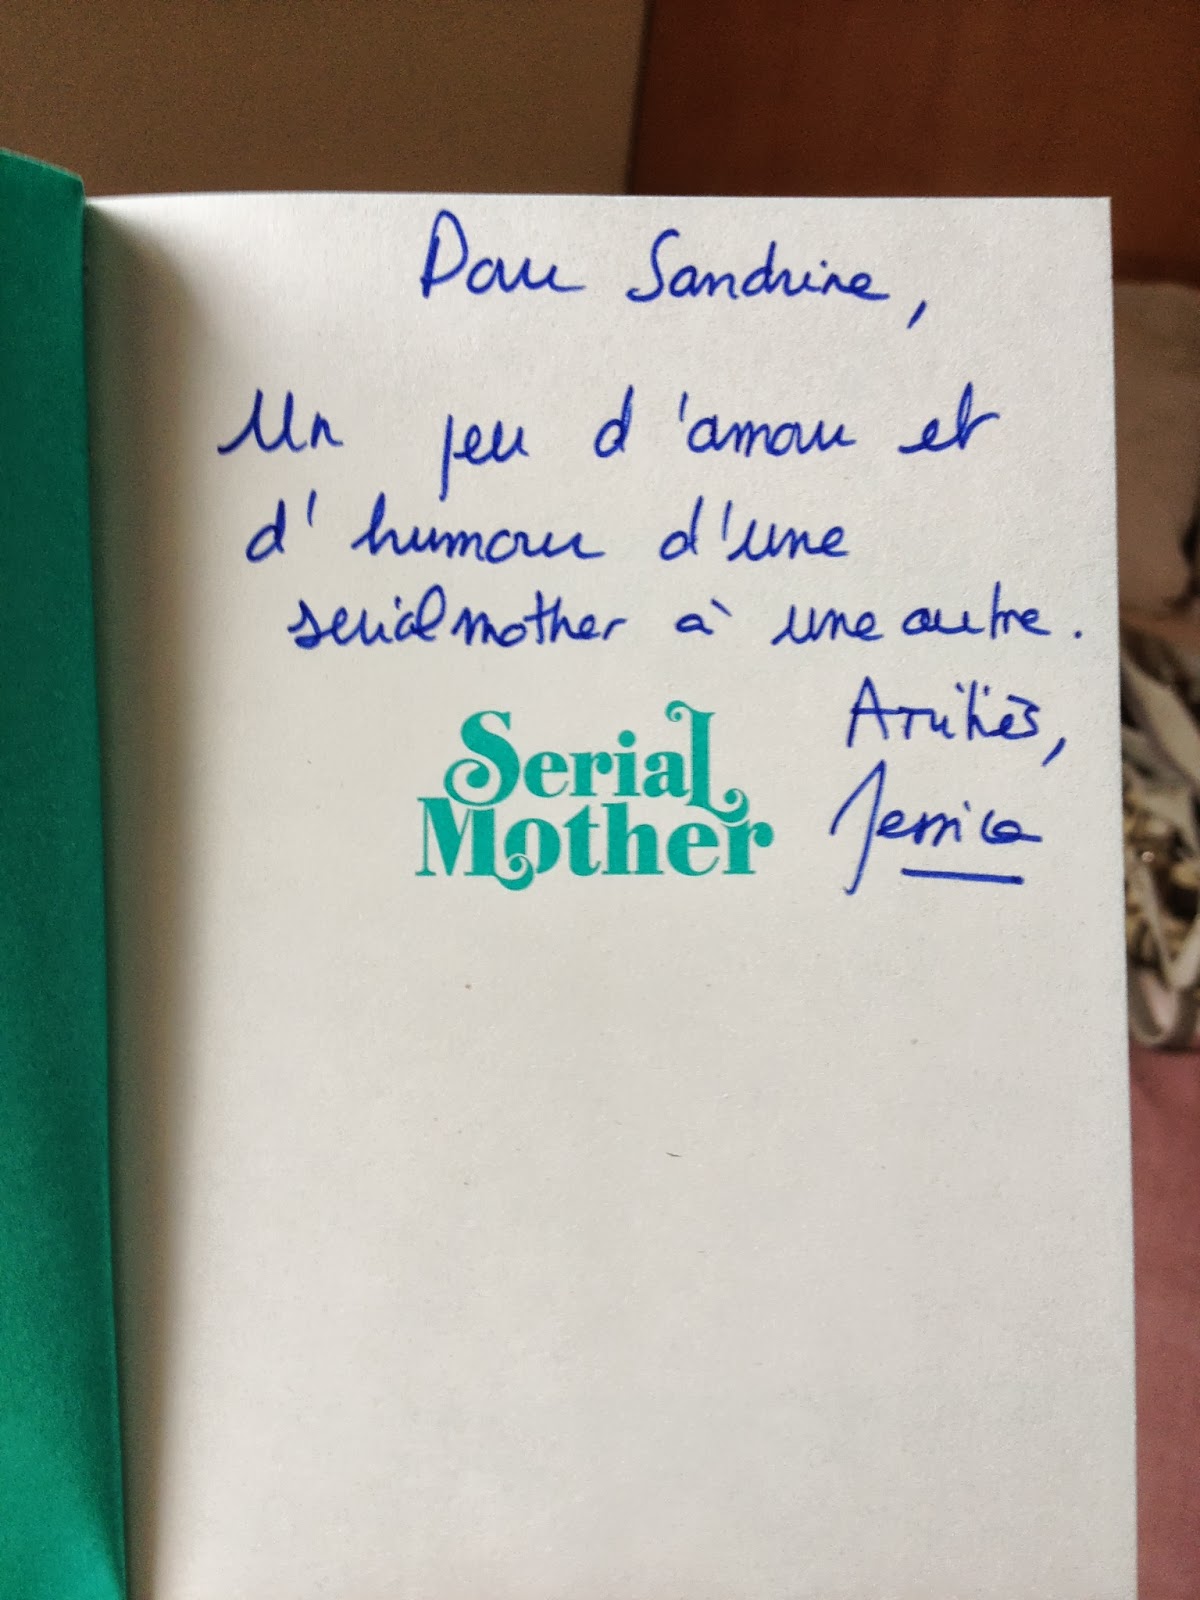 Pour Sandrine,
Un peu d'amour et
d'humour d'une
serialmother à une autre.
Amitiés,
Jessica
Serial
Mother